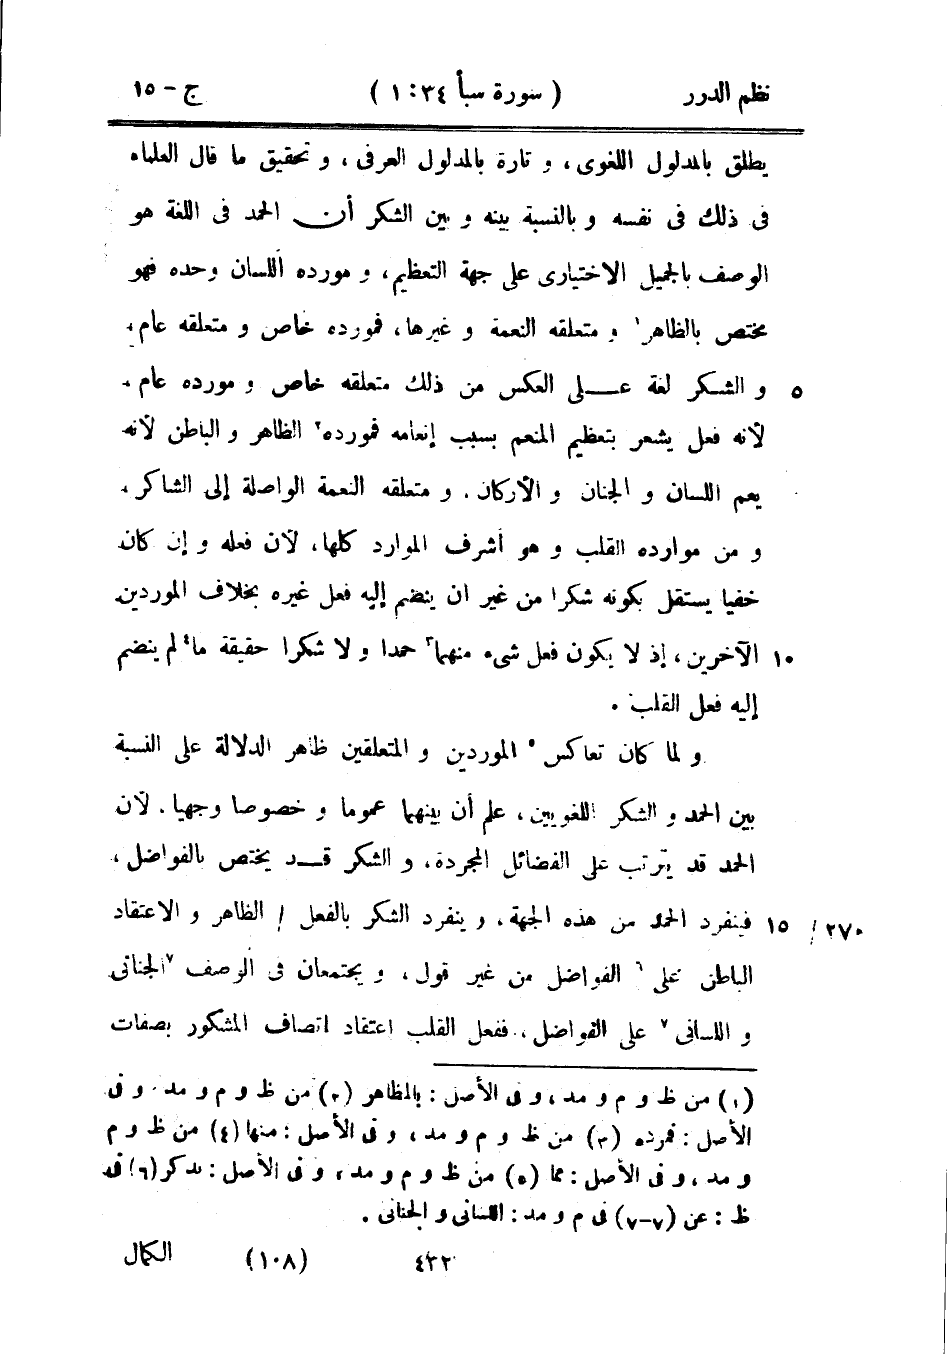 نظم الدرر ( سورة سبأ ٣٤ : ١ ) ج - ١٥
يطلق بالمدلول اللغوى، و تارة بالمدلول العرفى، و تحقيق ما قال العلماء
فى ذلك فى نفسه و بالنسبة بينه و بين الشكر أن الحمد فى اللغة هو
الوصف بالجميل الاختيارى على جهة التعظيم، و مورده اللسان وحده فهو
مختص بالظاهر١ و متعلقه النعمة و غيرها، فمورده خاص و متعلقه عام،
٥ و الشكر لغة على العكس من ذلك متعلقه خاص و مورده عام،
لأنه فعل يشعر بتعظيم المنعم بسبب إنعامه فمورده٢ الظاهر و الباطن لأنه
يعم اللسان و الجنان و الأركان، و متعلقه النعمة الواصلة إلى الشاكر،
و من موارده القلب و هو أشرف الموارد كلها، لأن فعله و إن كان
خفيا يستقل بكونه شكرا من غير ان ينضم إليه فعل غيره بخلاف الموردين
١٠ الآخرين، إذ لا يكون فعل شىء منهما٣ حمدا و لا شكرا حقيقة ما٤ لم ينضم
إليه فعل القلب .
و لما كان تعاكس٥ الموردين و المتعلقين ظاهر الدلالة على النسبة
بين الحمد و الشكر اللغويين، علم أن بينهما عموما و خصوصا وجهيا. لأن
الحمد قد يترتب على الفضائل المجردة، و الشكر قد يختص بالفواضل،
٢٧٠/ ١٥ فينفرد الحمد من هذه الجهة، و ينفرد الشكر بالفعل / الظاهر و الاعتقاد
الباطن على٦ الفواضل من غير قول، و يجتمعان فى الوصف ٧الجنانى
و اللسانى٧ على الفواضل، ففعل القلب اعتقاد اتصاف المشكور بصفات
(١) من ظ و م و مد، و فى الأصل : بالمظاهر (٢) من ظ و م و مد، و فى
الأصل : فمرده (٣) من ظ و م و مد، و فى الأصل : منها (٤) من ظ و م
و مد، و فى الأصل : مما (٥) من ظ و م و مد، و فى الأصل : بدكر (٦) فى
ظ : عن (٧-٧) فى م و مد : اللسانى و الجنانى .
٤٣٢ (١٠٨) الكمال